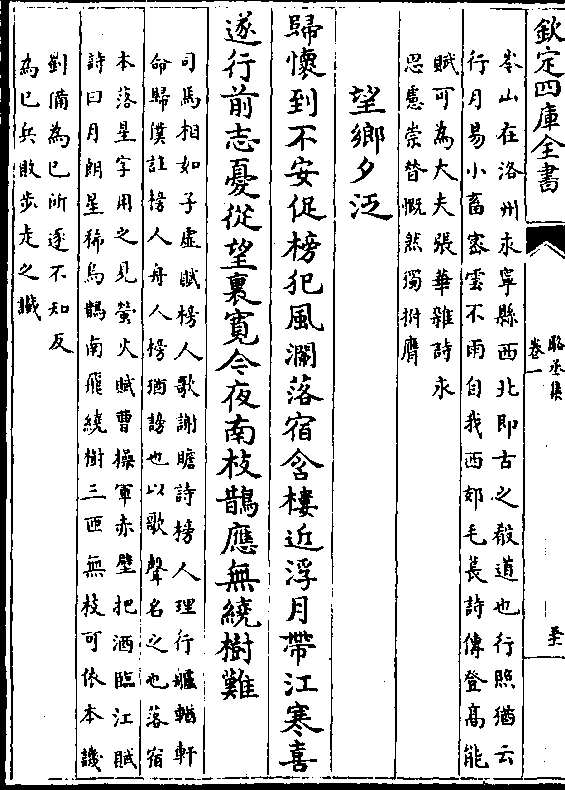 欽定四庫全書
駱丞集
卷一
岑山在洛州永寧縣西北即古之殽道也行照猶云
行月易小畜密雲不雨自我西郊毛萇詩傳登高能
賦可為大夫張華雜詩永
思慮崇替慨然獨拊膺
望鄉夕泛
歸懷到不安促榜犯風瀾落宿含樓近浮月帶江寒喜
遂行前志憂從望裏寬今夜南枝鵲應無繞樹難
司馬相如子虛賦榜人歌謝瞻詩榜人理行艫輶軒
命歸僕註榜人舟人榜猶謗也以歌聲名之也落宿
本落星字用之見螢火賦曹操軍赤壁把酒臨江賦
詩曰月朗星稀烏鵲南飛繞樹三匝無枝可依本譏
劉備為已所逐不知反
為已兵敗步走之讖